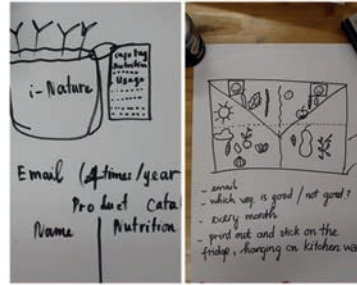 i-Nature
info tag
Nutrition
Usage
Email (4 times/year
Product Cata
Name Nutrition
- email
- which veg. is good / not good?
- every month
- print out and stick on the
fridge, hanging on kitchen wa